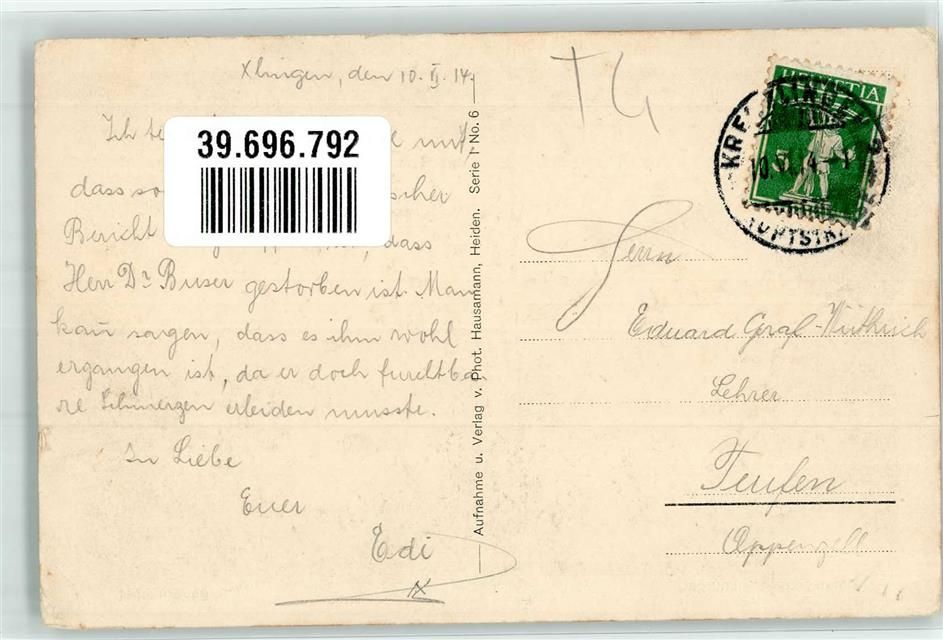 Xlingen, den 10. II. 14.
Ich
mit
39.696.792
dass
Bericht dass
Herr Dr Buser gestorben ist. Man
kann sagen, dass es ihm wohl
ergangen ist, da er doch furchtba-
re Schmerzen erleiden musste.
In Liebe
Euer
Edi
Aufnahme u. Verlag v. Phot. Hausamann, Heiden. Serie I No. 6
HELVETIA
5
Herrn
Eduard Graf-Wüthrich
Lehrer
Teufen
Appenzell